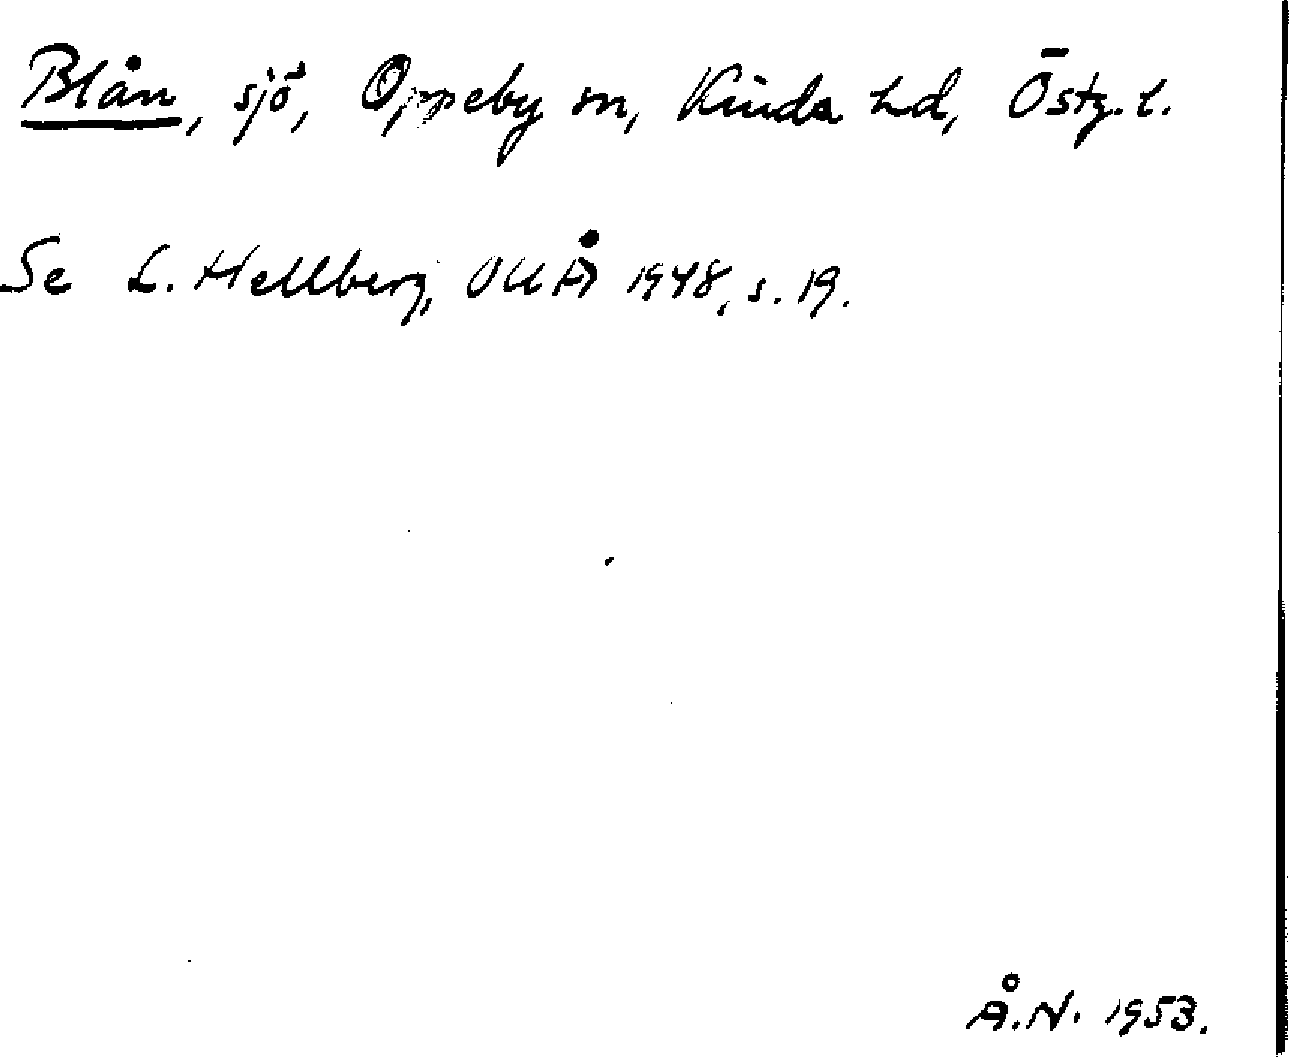 Blån, sjö, Oppeby sn, Kinda hd, Östg. l.
Se L. Hellberg, OUÅ 1948, s. 19.
Å.N. 1953.